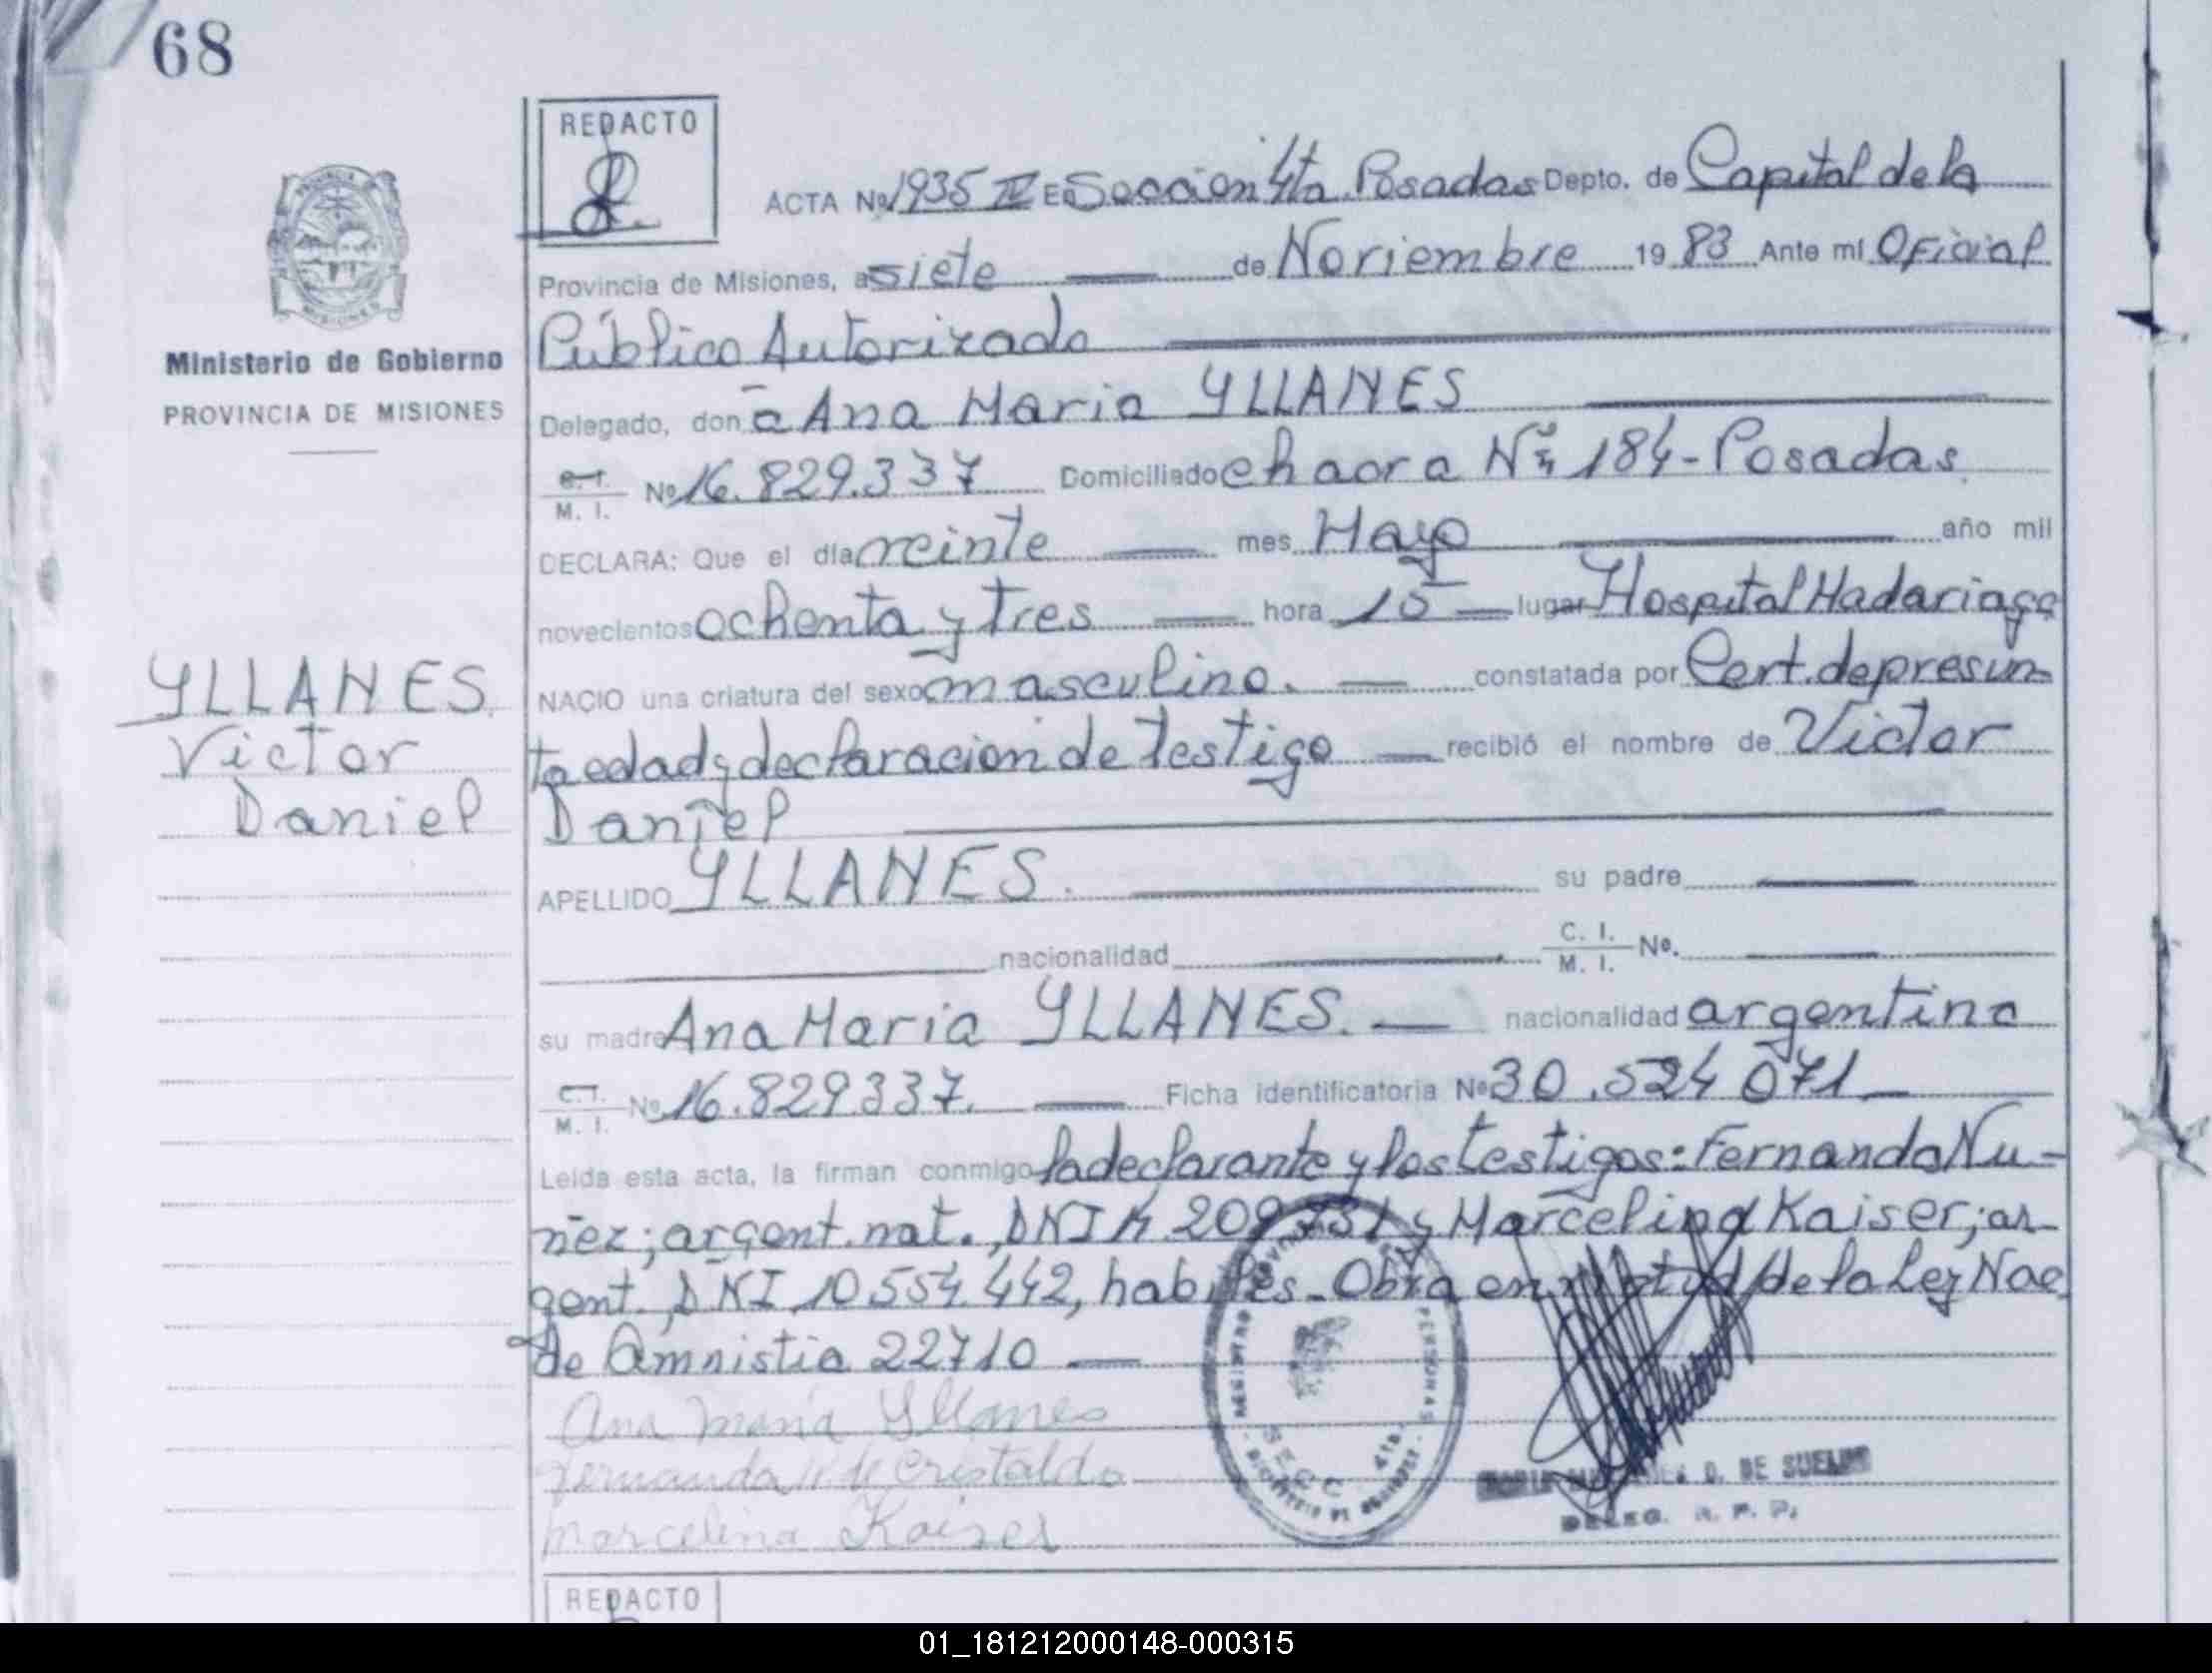 68
REDACTO
ACTA Nº 1935 IV En Sección 4ta Posadas Depto. de Capital de la
Provincia de Misiones, a siete de Noviembre 19 83 Ante mí Oficial
Público Autorizado
Ministerio de Gobierno
PROVINCIA DE MISIONES
Delegado, don a Ana Maria YLLANES
C. I.
M. I. Nº 16.829.337 Domiciliado chacra Nº 184 - Posadas
DECLARA: Que el día veinte mes Mayo año mil
novecientos ochenta y tres hora 15 lugar Hospital Madariaga
NACIO una criatura del sexo masculino. constatada por Cert. de presun-
ta edad y declaracion de testigo recibió el nombre de Victor
Daniel
YLLANES
Victor
Daniel
APELLIDO YLLANES. su padre
nacionalidad C. I.
M. I. Nº.
su madre Ana Maria YLLANES. nacionalidad argentina
C. I.
M. I. Nº 16.829.337. Ficha identificatoria Nº 30.524 071
Leída esta acta, la firman conmigo la declarante y los testigos: Fernanda Nu-
ñez; argent. nat., DNI y Marcelina Kaiser; ar-
gent. DNI 10 554 442, habiles. Obra en virtud de la Ley Nac
de Amnistia 22710
Ana María Yllanes
Fernanda N de Cristaldo
Marcelina Kaiser
REGISTRO PERSONAS
SECC. 4ta.
D. DE SUELDO
DELEG. R. P. P.
REDACTO
01_181212000148-000315